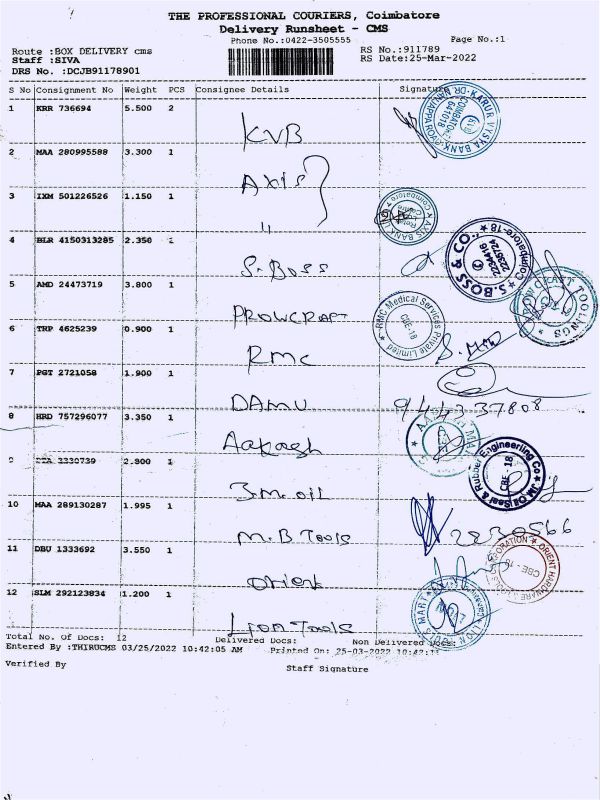 THE PROFESSIONAL COURIERS, Coimbatore
Delivery Runsheet - CMS
Phone No.:0422-3505555 Page No.:1
Route :BOX DELIVERY cms RS No.:911789
Staff :SIVA RS Date:25-Mar-2022
DRS No. :DCJB91178901
S No Consignment No Weight PCS Consignee Details Signature
1 KRR 736694 5.500 2
KVB
KARUR VYSYA BANK
641018
2 MAA 280995588 3.300 1
Axis
3 IXM 501226526 1.150 1
"
AXIS BANK
4 BLR 4150313285 2.350 1
S.Boss
S.BOSS & CO. Coimbatore-18
2234416
2236724
5 AMD 24473719 3.800 1
PROWCRAFT
TOOLINGS
RMC Medical Services Private Limited
CBE-18
6 TRP 4625239 0.900 1
RMC
7 PGT 2721058 1.900 1
DAMU
9443737808
8 HRD 757296077 3.350 1
Aakash
9 3330739 2.800 1
JM.oil
JM Oil Seal & Rubber Engineering Co
CBE 18
10 MAA 289130287 1.995 1
M.B Tools
2830566
11 DBU 1333692 3.550 1
Orient
ORIENT HARDWARE
CBE-18
12 SLM 292123834 1.200 1
Lion Tools
LION TOOLS MART
Total No. Of Docs: 12 Delivered Docs: Non Delivered Docs:
Entered By :THIRUCMS 03/25/2022 10:42:05 AM Printed On: 25-03-2022 10:42:11
Verified By Staff Signature